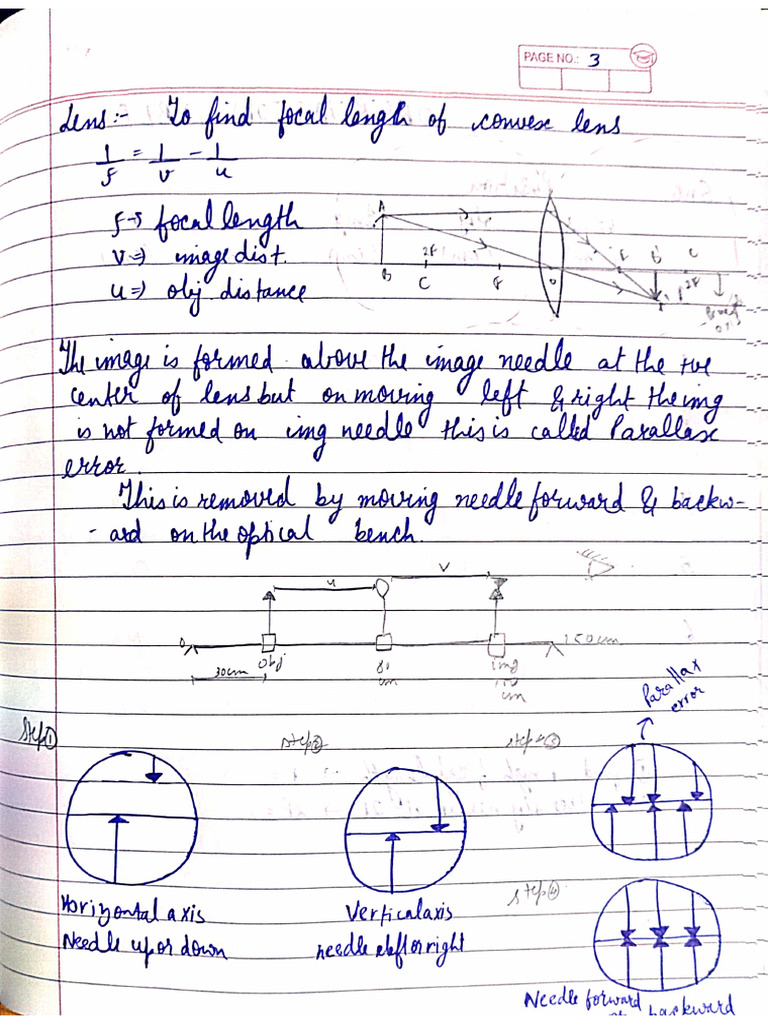 PAGE NO.: 3
Lens:- To find focal length of convex lens
1/f = 1/v - 1/u
f→ focal length
v⇒ image dist.
u⇒ obj distance
A
2F
B C F O F B' C
2F
A'
The image is formed above the image needle at the +ve
center of lens but on moving left & right the img
is not formed on img needle this is called Parallax
error.
This is removed by moving needle forward & backw-
-ard on the optical bench.
u v
0 obj 150cm
30cm cm img cm
Parallax
error
Step① Step② Step③
Horizontal axis
Needle up or down
Vertical axis
needle left or right
Step④
Needle forward
backward